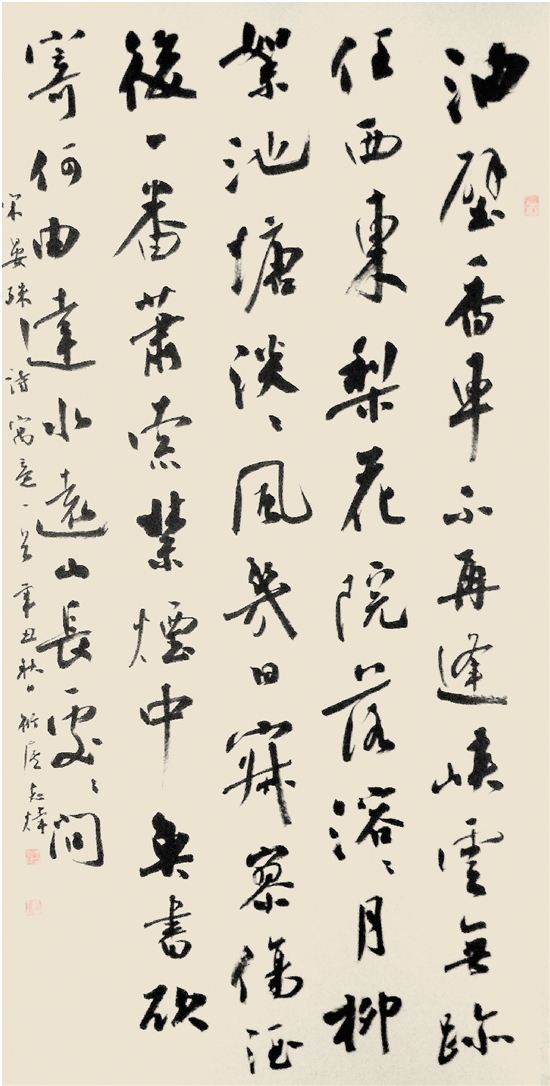 油壁香車不再逢峽雲無跡
任西東梨花院落溶、月柳
絮池塘淡、風幾日寂寥傷酒
後一番蕭索禁煙中魚書欲
寄何由達水遠山長處、同
宋晏殊詩寓意一首辛丑秋日